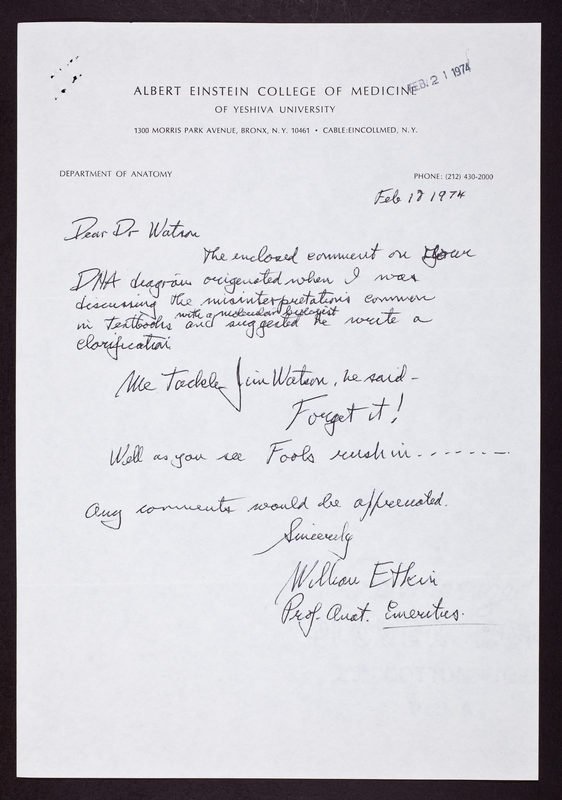 FEB. 21 1974
ALBERT EINSTEIN COLLEGE OF MEDICINE
OF YESHIVA UNIVERSITY
1300 MORRIS PARK AVENUE, BRONX, N.Y. 10461 • CABLE:EINCOLLMED, N.Y.
DEPARTMENT OF ANATOMY
PHONE: (212) 430-2000
Feb 18 1974
Dear Dr Watson
The enclosed comment on your
DNA diagram origenated when I was
discussing the misinterpretations common
in textbooks with a molecular biologist and suggested he write a
clarification
Me Tackle Jim Watson, he said -
Forget it!
Well as you see Fools rush in.......
Any comments would be appreciated.
Sincerely
William Etkin
Prof. Anat. Emeritus.